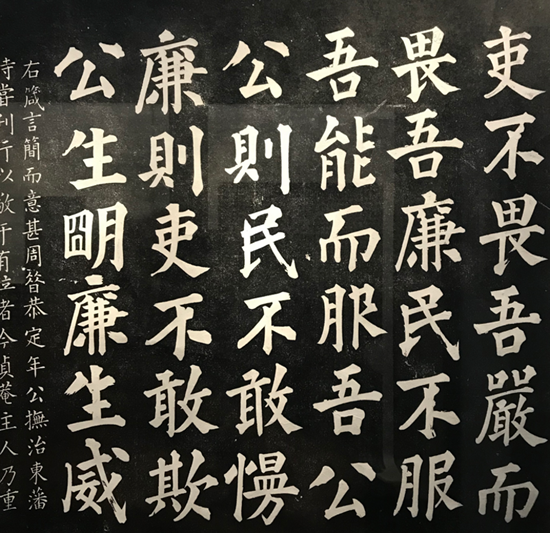 吏不畏吾嚴而
畏吾廉民不服
吾能而服吾公
公則民不敢慢
廉則吏不敢欺
公生明廉生威
右箴言簡而意甚周昔恭定年公撫治東藩
時嘗刊行以敬于有位者今貞菴主人乃重